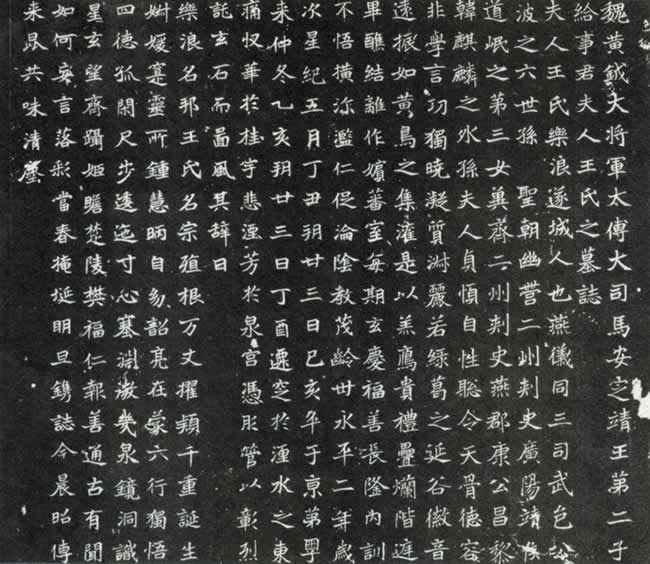 魏黃鉞大將軍太傅大司馬安定靖王第二子
給事君夫人王氏之墓誌
夫人王氏樂浪遂城人也燕儀同三司武邑公
波之六世孫 聖朝幽營二州刺史廣陽靖侯
道岷之第三女冀齊二州刺史燕郡康公昌黎
韓麒麟之外孫夫人貞慎自性聡令天骨德容
非學言功獨曉凝質淋麗若綠葛之延谷徽音
遠振如黃鳥之集灌是以羔鴈貴禮疊爛階庭
畢醮結離作嬪蕃室每期玄慶福善長隆內訓
不悟橫沵濫仁促淪陰教茂齡丗永平二年歲
次星紀五月丁丑朔廿三日己亥卒于京第粤
来仲冬乙亥朔廿三日丁酉遷窆於湹水之東
痛奴華於桂宇悲湮芳於泉宮憑彤管以彰烈
託玄石而啚風其辞曰
樂浪名邦王氏名宗殖根万丈擢穎千重誕生
姸媛寔靈所鍾慧昞自㓜韶亮在蒙六行獨悟
四德孤閑尺步透迤寸心塞淵澂幾泉鏡洞識
星玄望齊躡姬瞻楚陵樊福仁報善通古有聞
如何妄言落彩當春掩埏明旦鐫誌今晨昭傳
来昆共味清塵